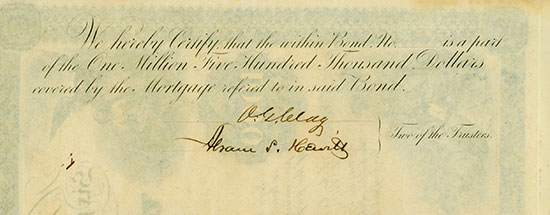 We hereby Certify that the within Bond No is a part
of the One Million Five Hundred Thousand Dollars
covered by the Mortgage refered to in said Bond.
Abram S. Hewitt
Two of the Trustees.